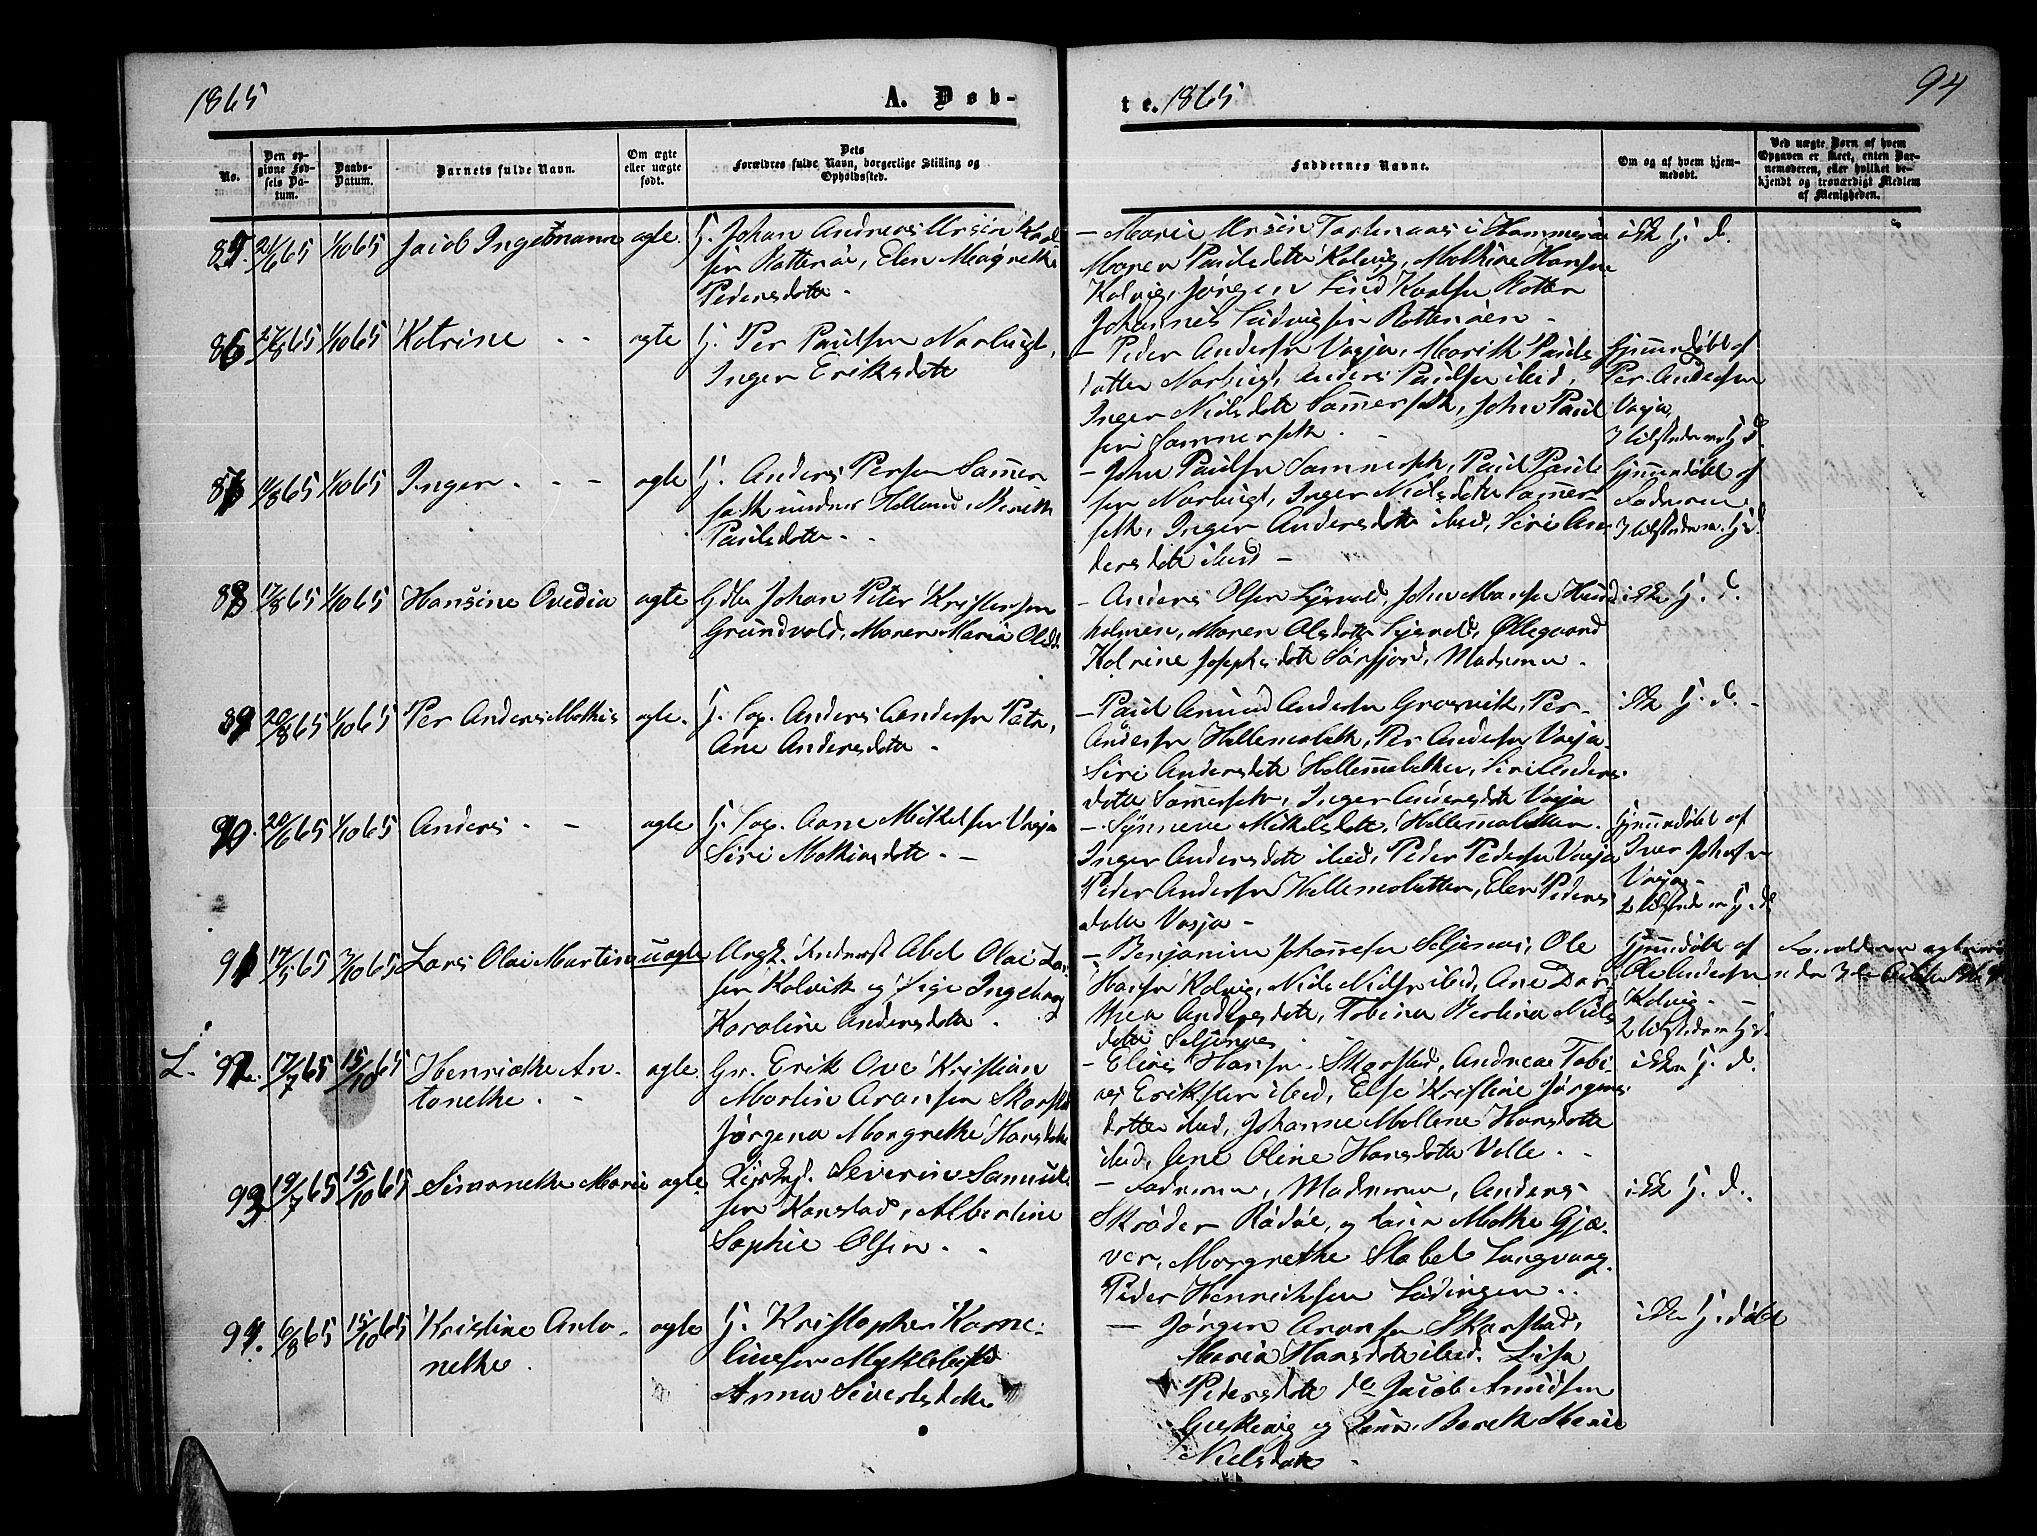 1865
A. Døb-
te. 1865
94
No.
Den op-
givne Fød-
sels Da-
tum.
Daabs-
Datum.
Barnets fulde Navn.
Om ægte
eller uægte
født.
Dets
Forældres fulde Navn, borgerlige Stilling og
Opholdssted.
Faddernes Navne.
Om og af hvem hjem-
medøbt.
Ved uægte Børn af hvem
Opgaven er skeet, enten Bar-
nemoderen, eller hvilket be-
kjendt og troværdigt Medlem
af Menigheden.
85. 21/6 65 1/10 65 Jacob Ingebmann ægte. G. Johan Andreas Ursin Karl
sen Rottenøi, Elen Magrethe
Pedersdatter
- Marie Ursin Taknæs i Hammerø
Maren Paulsdatter Kolvig, Hansen
Kolvig, Jørgen Lind Karlsen Rotten
Johannes Ludvigsen Rottenøen -
ikke hj. d.
86 27/8 65 1/10 65 Katrine - - ægte G. Per Paulsen Norbugt,
Inger Eriksdatter
- Peder Andersen Vasja, Marith Pauls
datter Norbugt, Anders Paulsen ibid,
Inger Nielsdatter Sommerseth, John Paul
sen Sommerseth.
Hjemmedøbt af
Per Andersen
Vasja,
87 1/8 65 1/10 65 Inger - - - ægte G. Anders Persen Sommer
seth under Helland, Berith
Paulsdatter.
- John Paulsen Sommerseth, Paul Paul
sen Norbugt, Inger Nielsdatter Sommer-
seth, Inger Andersdatter ibid, Siri An-
dersdatter ibid -
Hjemmedøbt af
Faderen
88 17/8 65 1/10 65 Hansine Ovedia ægte Gdbr Johan Peter Kristensen
Grundvold, Maren Maria Olsd.
- Anders Olsen Lysvold, John Hansen Hund
holmen, Maren Olsdatter Lysvold, Øllegaard
Katrine Josephsdatter Sørfjord, Moderen.
ikke hj. d.
89 20/8 65 1/10 65 Per Anders Mathis ægte. G. Lap. Anders Andersen
Ane Andersdatter -
- Paul Amund Andersen Grosvik, Per
Andersen Hellemobotn, Per Andersen Vasja
Siri Andersdatter Hellemobotten, Siri Anders
datter Sommerseth, Inger Andersdatter Vasja
ikke hj. d. -
90. 20/6 65 1/10 65 Anders - - ægte G. Lap. Aane Mikkelsen Vasja
Siri Mathisdatter. -
- Synneve Mikkelsdatter Hellemobotten
Inger Andersdatter ibid, Peder Pedersen Vasja
Peder Andersen Hellemobotten, Elen Peders
datter Vasja -
Hjemmedøbt af
Iver Johnsen
Vasja -
91 17/5 65 1/10 65 Lars Olai Martin uægte Ungk. Inderst Abel Olai Lar
sen Kolvik og Pige Ingeborg
Karoline Andersdatter.
- Benjamin Johannesen Seljenæs, Ole
Hansen Kolvig, Niels Nielsen ibid, Ane Dor-
thea Andersdatter, Tobina Berlina Niels
datter Seljenes.
Hjemmedøbt af
Ole Andersen
Kolvig. -
L. 92. 17/7 65 15/10 65 Henriethe An-
tonethe. - ægte. Gr. Erik Ove Kristian
Martin Aronsen Skarstad
Jørgena Margrethe Hansdatter
- Elias Hansen Skarstad, Andreas Tobi
as Eriksen ibid, Else Kristine Jørgens
datter ibid, Johanne Mallene Hansdatter
ibid, Ane Oline Hansdatter Valle.
ikke hj. d.
93 19/7 65 15/10 65 Simonethe Marie ægte. Severin Samuel
sen Kanstad, Albertine
Sophie Olsen.
- Faderen, Moderen, Anders
Skrøder Rødøe, og Malke Gjæ-
ver, Margrethe Stabel Langvaag,
Peder Henriksen Lødingen.
ikke hj. d.
94. 6/8 65 15/10 65 Kristine Anto-
nethe. ægte G. Kristopher Korne-
liussen Myklebust
Anna Sivertsdatter
- Jørgen Aronsen Skarstad,
Maria Hansdatter ibid. Lisa
Pedersdatter do Jacob Amundsen
og Berith Marie
Nielsdatter.
ikke hj. døbt